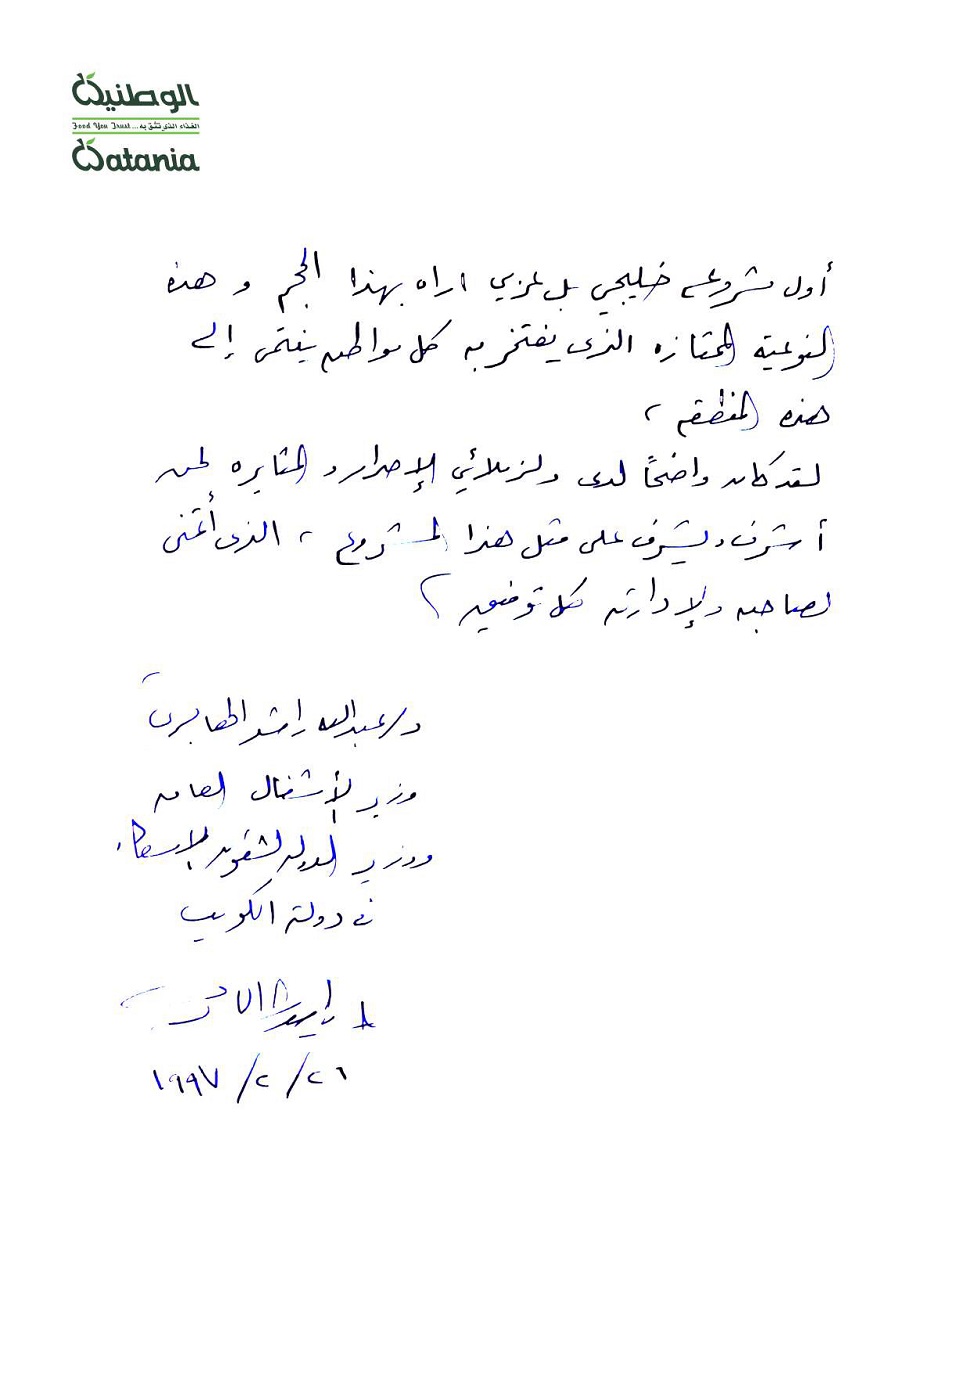 الوطنية
Food You Trust... الغذاء الذي تثق به
Watania
أول مشروع خليجي بل عربي اراه بهذا الحجم و هذه
النوعية الممتازه الذى يفتخر به كل مواطن ينتمى إلى
هذه المنطقه ،
لقد كان واضحاً لدى ولزملائي الإصرار و المثابره لمن
أشرف ويشرف على مثل هذا المشروع ، الذى أتمنى
لصاحبه ولإدارته كل توفيق ؟
د/عبدالله راشد الهاجرى
وزير الأشغال العامه
ووزير الدوله لشئون الإسكان
فى دولة الكويت
٢٦/٢/١٩٩٧